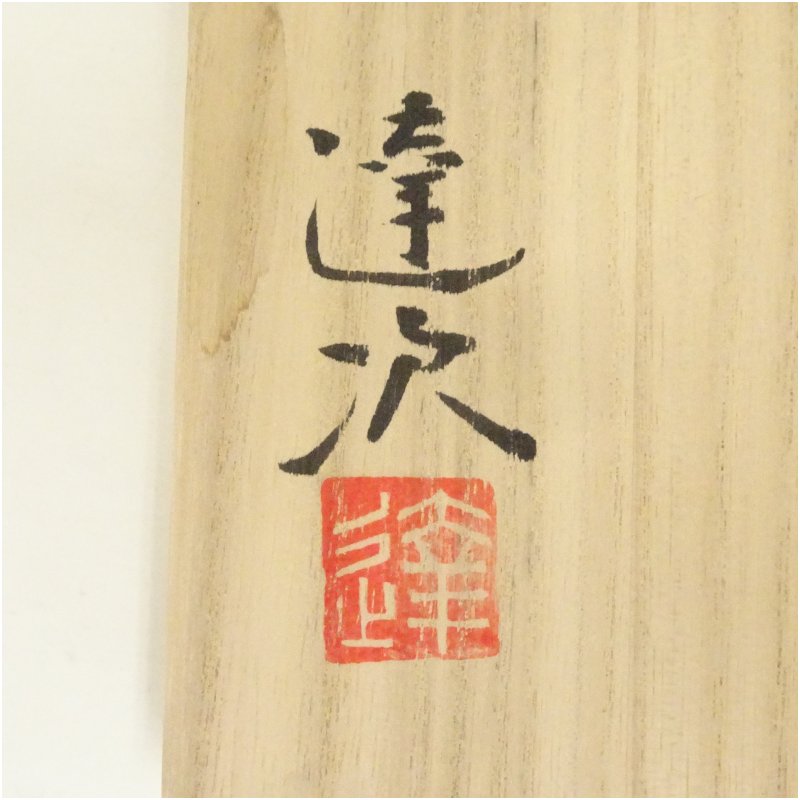 達次
達